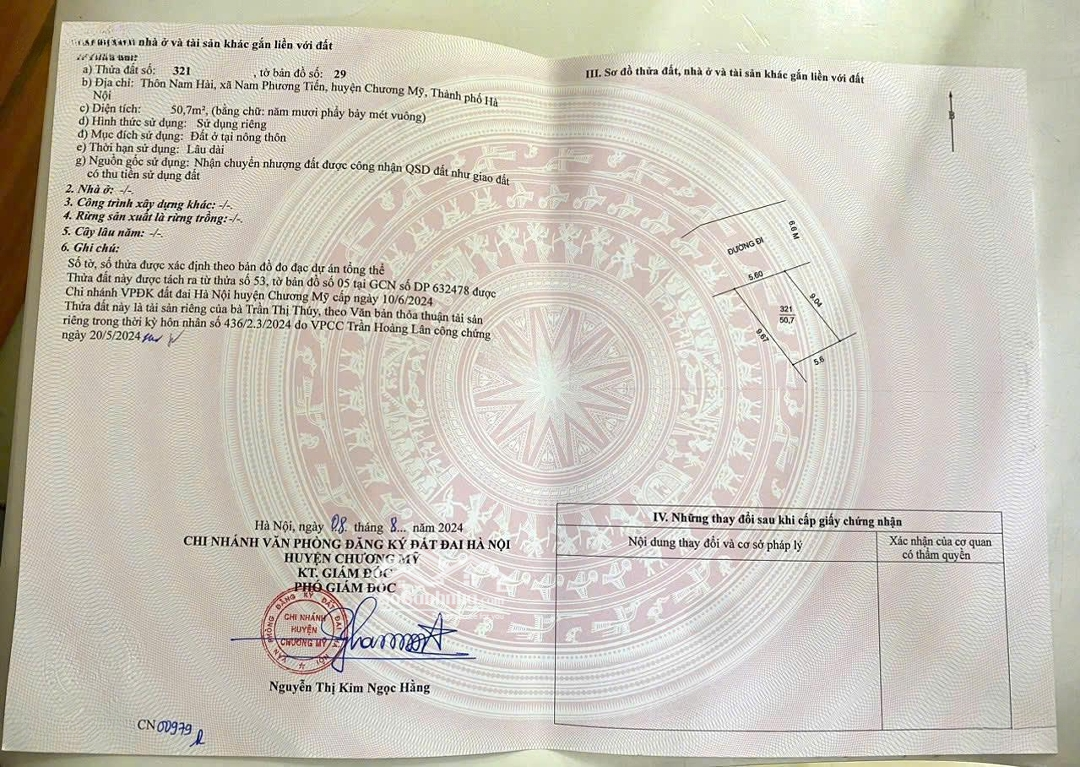 nhà ở và tài sản khác gắn liền với đất
a) Thửa đất số: 321 , tờ bản đồ số: 29
b) Địa chỉ: Thôn Nam Hải, xã Nam Phương Tiến, huyện Chương Mỹ, Thành phố Hà
Nội
c) Diện tích: 50,7m², (bằng chữ: năm mươi phẩy bảy mét vuông)
d) Hình thức sử dụng: Sử dụng riêng
đ) Mục đích sử dụng: Đất ở tại nông thôn
e) Thời hạn sử dụng: Lâu dài
g) Nguồn gốc sử dụng: Nhận chuyển nhượng đất được công nhận QSD đất như giao đất
có thu tiền sử dụng đất
2. Nhà ở: -/-.
3. Công trình xây dựng khác: -/-.
4. Rừng sản xuất là rừng trồng: -/-.
5. Cây lâu năm: -/-.
6. Ghi chú:
Số tờ, số thửa được xác định theo bản đồ đo đạc dự án tổng thể
Thửa đất này được tách ra từ thửa số 53, tờ bản đồ số 05 tại GCN số DP 632478 được
Chi nhánh VPĐK đất đai Hà Nội huyện Chương Mỹ cấp ngày 10/6/2024
Thửa đất này là tài sản riêng của bà Trần Thị Thúy, theo Văn bản thỏa thuận tài sản
riêng trong thời kỳ hôn nhân số 436/2.3/2024 do VPCC Trần Hoàng Lân công chứng
ngày 20/5/2024
Hà Nội, ngày 08 tháng 8... năm 2024
CHI NHÁNH VĂN PHÒNG ĐĂNG KÝ ĐẤT ĐAI HÀ NỘI
HUYỆN CHƯƠNG MỸ
KT. GIÁM ĐỐC
PHÓ GIÁM ĐỐC
VĂN PHÒNG ĐĂNG KÝ ĐẤT ĐAI HÀ NỘI
CHI NHÁNH
HUYỆN
CHƯƠNG MỸ
Nguyễn Thị Kim Ngọc Hằng
CN 00979
III. Sơ đồ thửa đất, nhà ở và tài sản khác gắn liền với đất
B
6.6 M
ĐƯỜNG ĐI
5.60
9.04
321
50,7
9.67
5.6
IV. Những thay đổi sau khi cấp giấy chứng nhận
Nội dung thay đổi và cơ sở pháp lý
Xác nhận của cơ quan
có thẩm quyền